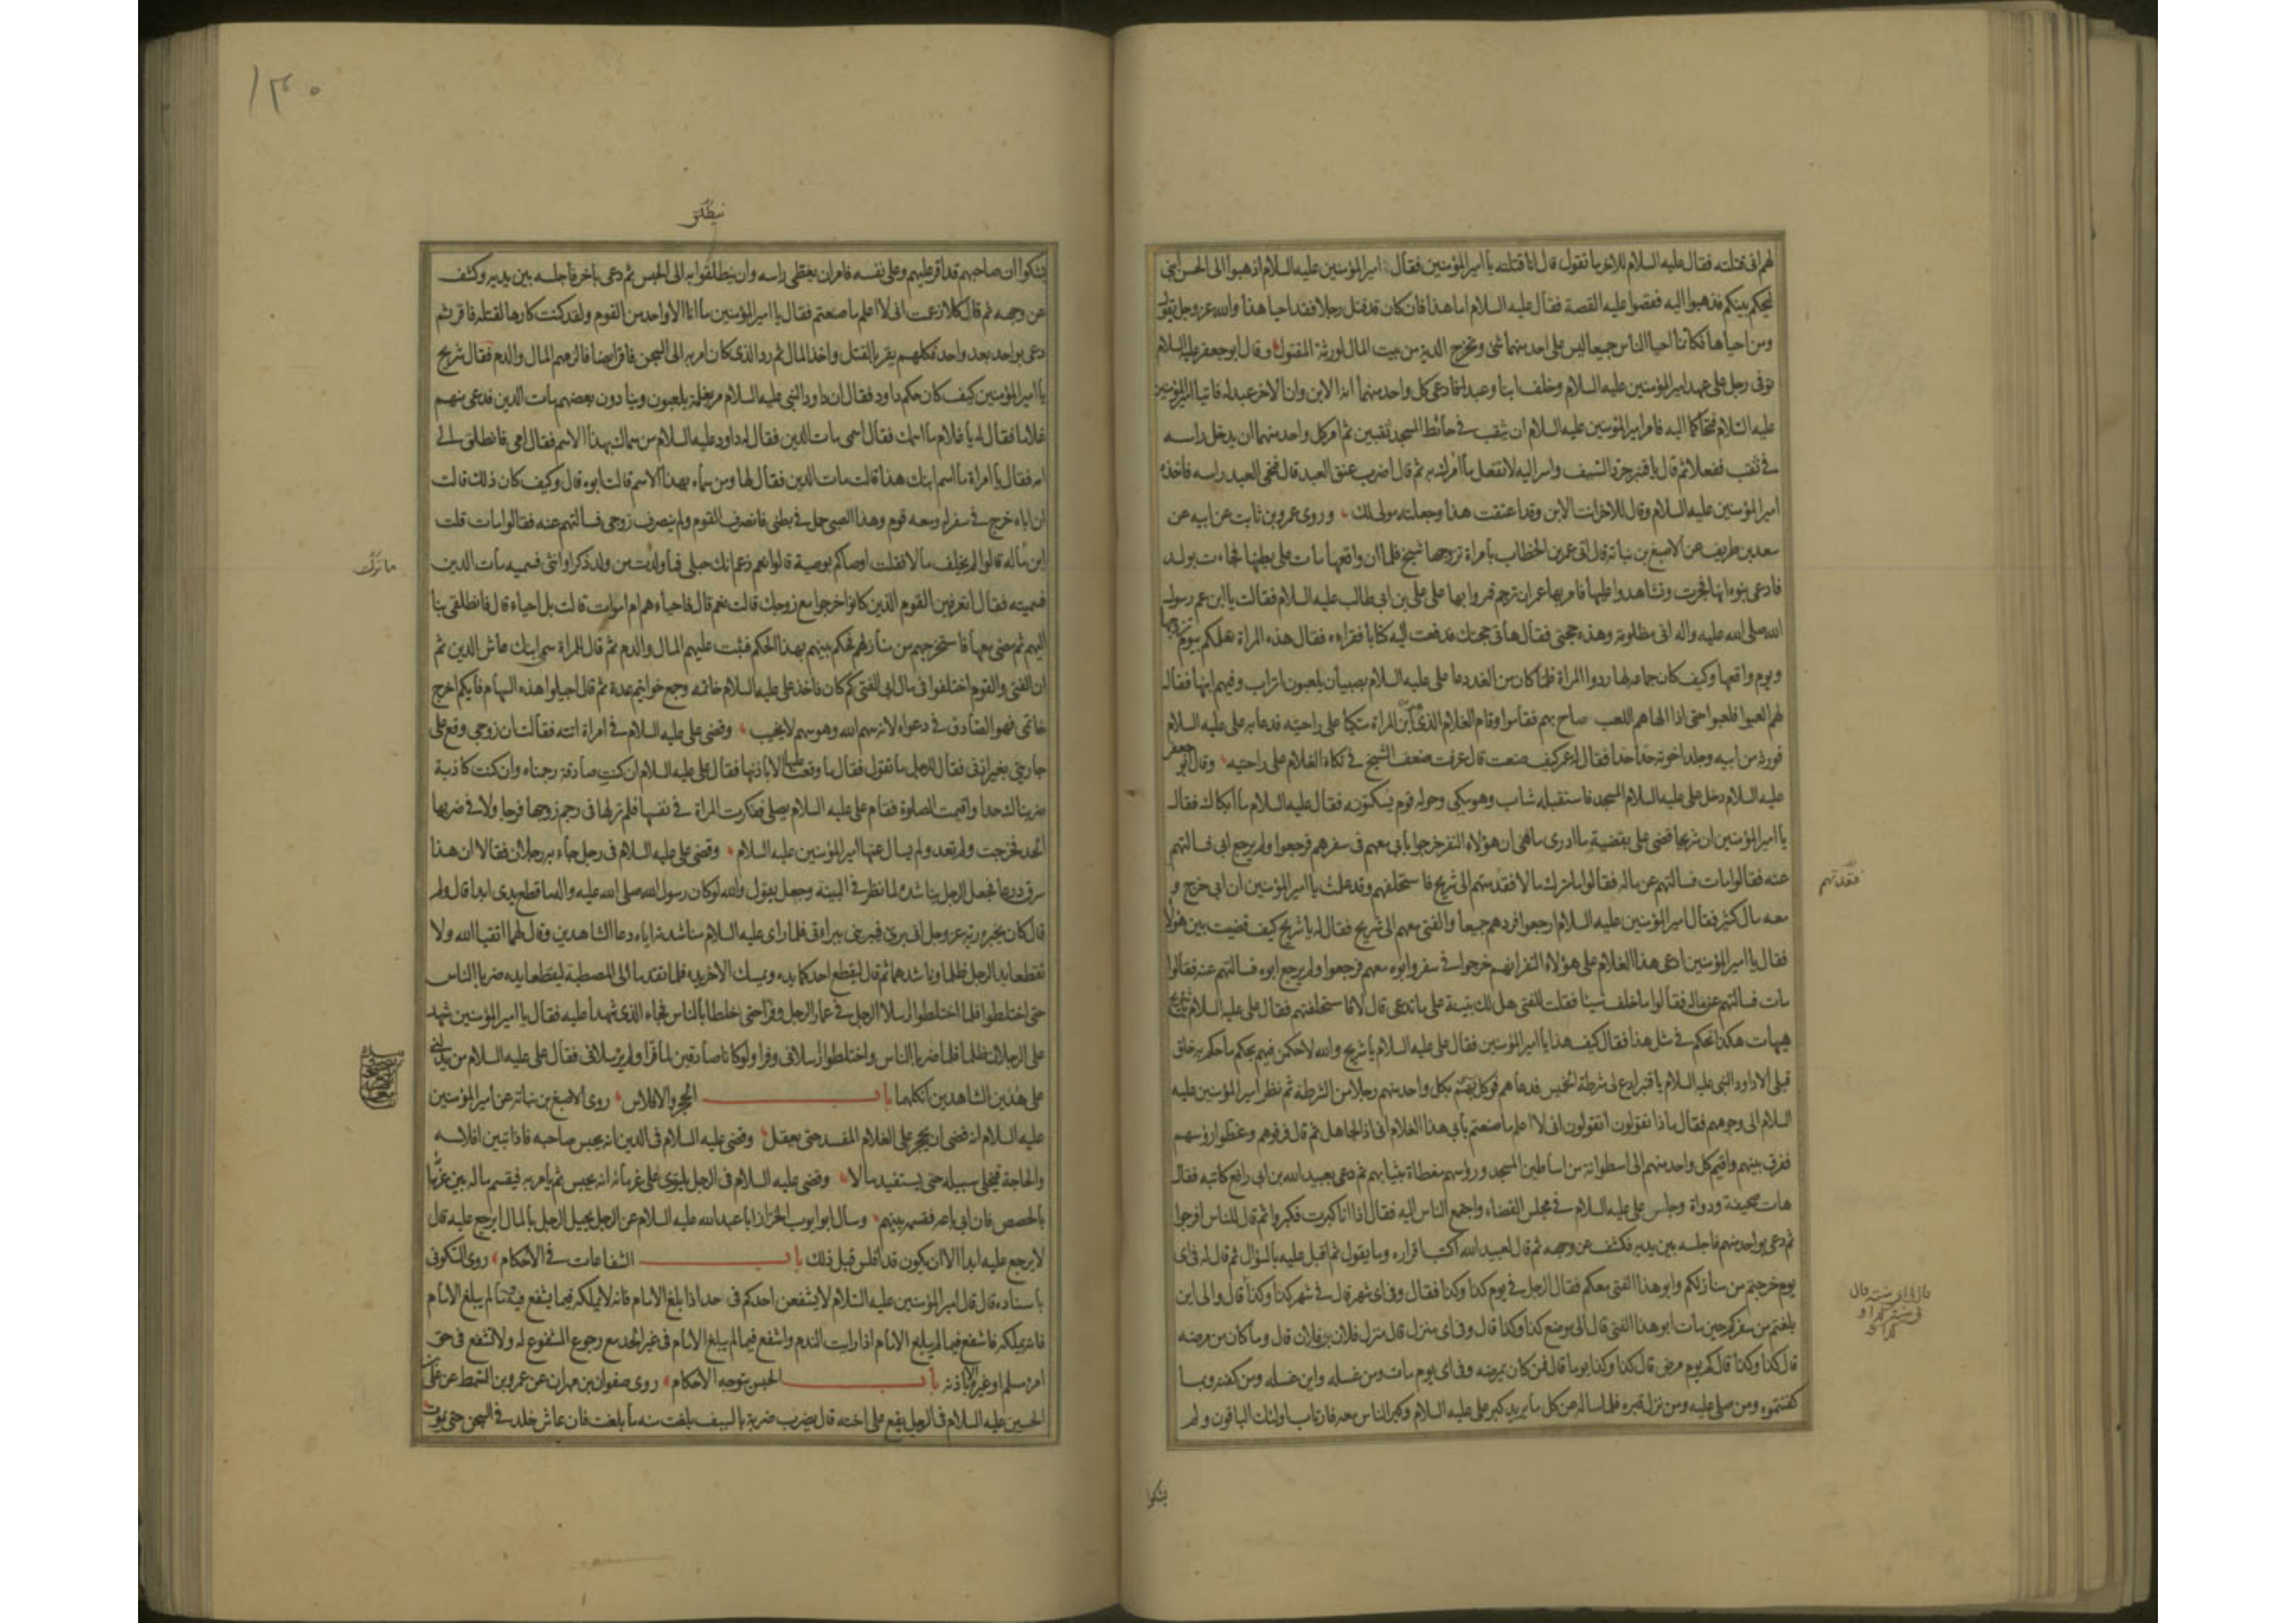 لهم انى قتلته فقال عليه السلام للاخر ما تقول قال انا قتلته يا امير المؤمنين فقال امير المؤمنين عليه السلام اذهبوا الى الحسن ابنى
ليحكم بينكم فذهبوا اليه فقصوا عليه القصة فقال عليه السلام اما هذا فان كان قد قتل رجلا فقد احيا هذا والله عز وجل يقول
ومن احياها فكانما احيا الناس جميعا ليس على احد منهما شئ وتخرج الدية من بيت المال لورثة المقتول وقال ابو جعفر عليه السلام
توفى رجل على عهد امير المؤمنين عليه السلام وخلف ابنا وعبدا فادعى كل واحد منهما انه الابن وان الاخر عبد له فاتيا امير المؤمنين
عليه السلام فتحاكما اليه فامر امير المؤمنين عليه السلام ان يثقب فى حائط المسجد ثقبين ثم امر كل واحد منهما ان يدخل راسه
فى ثقب ففعلا ثم قال يا قنبر جرد السيف واسر اليه لا تفعل ما آمرك به ثم قال اضرب عنق العبد قال فنحى العبد راسه فاخذه
امير المؤمنين عليه السلام وقال للاخر انت الابن وقد اعتقت هذا وجعلته مولى لك وروى عمرو بن ثابت عن ابيه عن
سعد بن طريف عن الاصبغ بن نباتة قال اتى عمر بن الخطاب بامراة تزوجها شيخ فلما ان واقعها مات على بطنها فجاءت بولد
فادعى بنوه انها فجرت وتشاهدوا عليها فامر بها عمر ان ترجم فمروا بها على على بن ابى طالب عليه السلام فقالت يا ابن عم رسول
الله صلى الله عليه واله انى مظلومة وهذه حجتى فقال هاتى حجتك فدفعت اليه كتابا فقراءه فقال هذه المراة تعلمكم بيوم تزوجها
ويوم واقعها وكيف كان جماعه لها ردوا المراة فلما كان من الغد دعا على عليه السلام بصبيان يلعبون اتراب وفيهم ابنها فقال
لهم العبوا فلعبوا حتى اذا الهاهم اللعب صاح بهم فقاموا وقام الغلام الذى هو ابن المراة متكيا على راحتيه فدعا به على عليه السلام
فورثه من ابيه وجلد اخوته حدا حدا فقال له عمر كيف صنعت قال عرفت ضعف الشيخ فى تكاة الغلام على راحتيه وقال ابو جعفر
عليه السلام دخل على عليه السلام المسجد فاستقبله شاب وهو يبكى وحوله قوم يسكتونه فقال عليه السلام ما ابكاك فقال
يا امير المؤمنين ان شريحا قضى على بقضية ما ادرى ما هى ان هؤلاء النفر خرجوا بابى معهم فى سفرهم فرجعوا ولم يرجع ابى فسالتهم
عنه فقالوا مات فسالتهم عن ماله فقالوا ما ترك مالا فقدمتهم الى شريح فاستحلفهم وقد علمت يا امير المؤمنين ان ابى خرج و
فقدمتهم
معه مال كثير فقال امير المؤمنين عليه السلام ارجعوا فردهم جميعا والفتى معهم الى شريح فقال له يا شريح كيف قضيت بين هؤلاء
فقال يا امير المؤمنين ادعى هذا الغلام على هؤلاء النفر انهم خرجوا فى سفر وابوه معهم فرجعوا ولم يرجع ابوه فسالتهم عنه فقالوا
مات فسالتهم عن ماله فقالوا ما خلف شيئا فقلت للفتى هل لك بينة على ما تدعى قال لا فاستحلفتهم فقال على عليه السلام يا شريح
هيهات هكذا تحكم فى مثل هذا فقال كيف هذا يا امير المؤمنين فقال على عليه السلام يا شريح والله لاحكمن فيهم بحكم ما حكم به خلق
قبلى الا داود النبى عليه السلام يا قنبر ادع لى شرطة الخميس فدعاهم فوكل بهم بكل واحد منهم رجلا من الشرطة ثم نظر امير المؤمنين عليه
السلام الى وجوههم فقال ماذا تقولون اتقولون انى لا اعلم ما صنعتم بابى هذا الغلام انى اذا لجاهل ثم قال فرقوهم وغطوا رؤسهم
ففرق بينهم واقيم كل واحد منهم الى اسطوانة من اساطين المسجد ورؤسهم مغطاة بثيابهم ثم دعى بعبيد الله بن ابى رافع كاتبه فقال
هات صحيفة ودواة وجلس على عليه السلام فى مجلس القضاء واجتمع الناس اليه فقال اذا انا كبرت فكبروا ثم قال للناس افرجوا
ثم دعى بواحد منهم فاجلسه بين يديه فكشف عن وجهه ثم قال لعبيد الله اكتب اقراره وما يقول ثم اقبل عليه بالسؤال ثم قال له فى اى
يوم خرجتم من منازلكم وابو هذا الفتى معكم فقال الرجل فى يوم كذا وكذا فقال وفى اى شهر قال فى شهر كذا وكذا قال والى اين
بلغتم من سفركم حين مات ابو هذا الفتى قال الى موضع كذا وكذا قال وفى اى منزل قال منزل فلان بن فلان قال وما كان من مرضه
قال كذا وكذا قال كم يوم مرض قال كذا وكذا يوما قال فمن كان يمرضه وفى اى يوم مات ومن غسله واين غسله ومن كفنه وبما
كفنتموه ومن صلى عليه ومن نزل قبره فلما ساله عن كل ما يريد كبر على عليه السلام وكبر الناس معه فارتاب اولئك الباقون ولم
يشكوا
١٣٠
فينطلق
يشكوا ان صاحبهم قد اقر عليهم وعلى نفسه فامر ان يغطى راسه وان ينطلقوا به الى الحبس ثم دعى باخر فاجلسه بين يديه وكشف
عن وجهه ثم قال كلا زعمت انى لا اعلم ما صنعتم فقال يا امير المؤمنين ما انا الا واحد من القوم ولقد كنت كارها لقتله فاقر ثم
دعى بواحد بعد واحد فكلهم يقر بالقتل واخذ المال ثم رد الذى كان امر به الى السجن فاقر ايضا فالزمهم المال والدم فقال شريح
يا امير المؤمنين كيف كان حكم داود فقال ان داود النبى عليه السلام مر بغلمة يلعبون وينادون بعضهم مات الدين فدعى منهم
غلاما فقال له يا غلام ما اسمك فقال اسمى مات الدين فقال له داود عليه السلام من سماك بهذا الاسم فقال امى فانطلق الى
امه فقال يا امراة ما اسم ابنك هذا قالت مات الدين فقال لها ومن سماه بهذا الاسم قالت ابوه قال وكيف كان ذلك قالت
ان اباه خرج فى سفر له ومعه قوم وهذا الصبى حمل فى بطنى فانصرف القوم ولم ينصرف زوجى فسالتهم عنه فقالوا مات قلت
اين ماله قالوا لم يخلف مالا فقلت اوصاكم بوصية قالوا نعم زعم انك حبلى فما ولدت من ولد ذكرا وانثى فسميه مات الدين
ما ترك
فسميته فقال اتعرفين القوم الذين كانوا خرجوا مع زوجك قالت نعم قال فاحياء هم ام اموات قالت بل احياء قال فانطلقى بنا
اليهم ثم مضى معها فاستخرجهم من منازلهم فحكم بينهم بهذا الحكم فثبت عليهم المال والدم ثم قال للمراة سمى ابنك عاش الدين ثم
ان الفتى والقوم اختلفوا فى مال ابى الفتى كم كان فاخذ على عليه السلام خاتمه وجمع خواتيم عدة ثم قال اجيلوا هذه السهام فايكم اخرج
خاتمى فهو الصادق فى دعواه لانه سهم الله وهو سهم لا يخيب وقضى على عليه السلام فى امراة اتته فقالت ان زوجى وقع على
جاريتى بغير اذنى فقال للرجل ما تقول فقال ما وقعت عليها الا باذنها فقال على عليه السلام ان كنت صادقة رجمناه وان كنت كاذبة
ضربناك حدا واقيمت الصلوة فقام على عليه السلام يصلى ففكرت المراة فى نفسها فلم تر لها فى رجم زوجها فرجا ولا فى ضربها
الحد فخرجت ولم تعد ولم يسال عنها امير المؤمنين عليه السلام وقضى على عليه السلام فى رجل جاء به رجلان فقالا ان هذا
سرق درعا فجعل الرجل يناشده لما نظر فى البينة وجعل يقول والله لو كان رسول الله صلى الله عليه واله ما قطع يدى ابدا قال ولم
قال كان يخبره ربه عز وجل انى برئ فيبرئنى ببراءتى فلما راى عليه السلام مناشدته اياه دعا الشاهدين وقال لهما اتقيا الله ولا
تقطعا يد الرجل ظلما وناشدهما ثم قال ليقطع احدكما يده ويمسك الاخر يده فلما تقدما الى المصطبة ليقطعا يده ضربا الناس
حتى اختلطوا فلما اختلطوا ارسلا الرجل فى غمار الرجل وفرا حتى اختلطا بالناس فجاء الذى شهدا عليه فقال يا امير المؤمنين شهد
على الرجلان ظلما فلما ضربا الناس واختلطوا ارسلانى وفرا ولو كانا صادقين لما فرا ولم يرسلانى فقال على عليه السلام من يدلنى
على هذين الشاهدين انكلهما باب الحجر والافلاس روى الاصبغ بن نباتة عن امير المؤمنين
عليه السلام انه قضى ان يحجر على الغلام المفسد حتى يعقل وقضى عليه السلام فى الدين انه يحبس صاحبه فاذا تبين افلاسه
والحاجة فيخلى سبيله حتى يستفيد مالا وقضى عليه السلام فى الرجل يلتوى على غرمائه انه يحبس ثم يامر به فيقسم ماله بين غرمائه
بالحصص فان ابى باعه فقسمه بينهم وسال ابو ايوب الخزاز ابا عبد الله عليه السلام عن الرجل يحيل الرجل بالمال ايرجع عليه قال
لا يرجع عليه ابدا الا ان يكون قد افلس قبل ذلك باب الشفاعات فى الاحكام روى السكونى
باسناده قال قال امير المؤمنين عليه السلام لا يشفعن احدكم فى حد اذا بلغ الامام فانه لا يملكه فيما يشفع فيه وما لم يبلغ الامام
فانه يملكه فاشفع فيما لم يبلغ الامام اذا رايت الندم واشفع فيما لم يبلغ الامام فى غير الحد مع رجوع المشفوع له ولا تشفع فى حق
امرء مسلم او غيره الا باذنه باب الحبس بتوجه الاحكام روى صفوان بن مهران عن عمرو بن السمط عن على بن
الحسين عليه السلام فى الرجل يقع على اخته قال يضرب ضربة بالسيف بلغت منه ما بلغت فان عاش خلد فى السجن حتى يموت